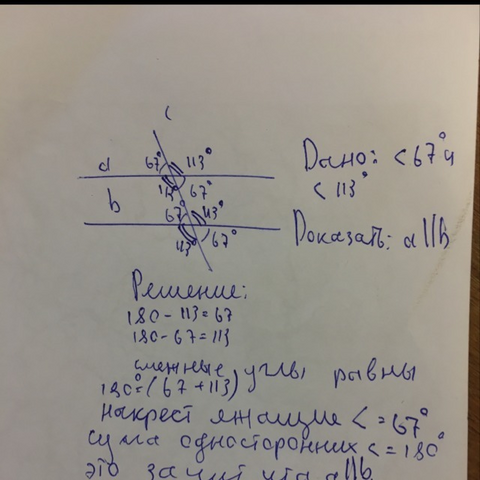 c
a 67° 113°
113° 67°
b 67° 113°
113° 67°
Дано: <67° и
<113°
Доказать: a||b
Решение:
180-113=67
180-67=113
смежные углы равны
180°=(67+113)
накрест лжащие <=67°
сума односторонних <=180°
это зачит что a||b